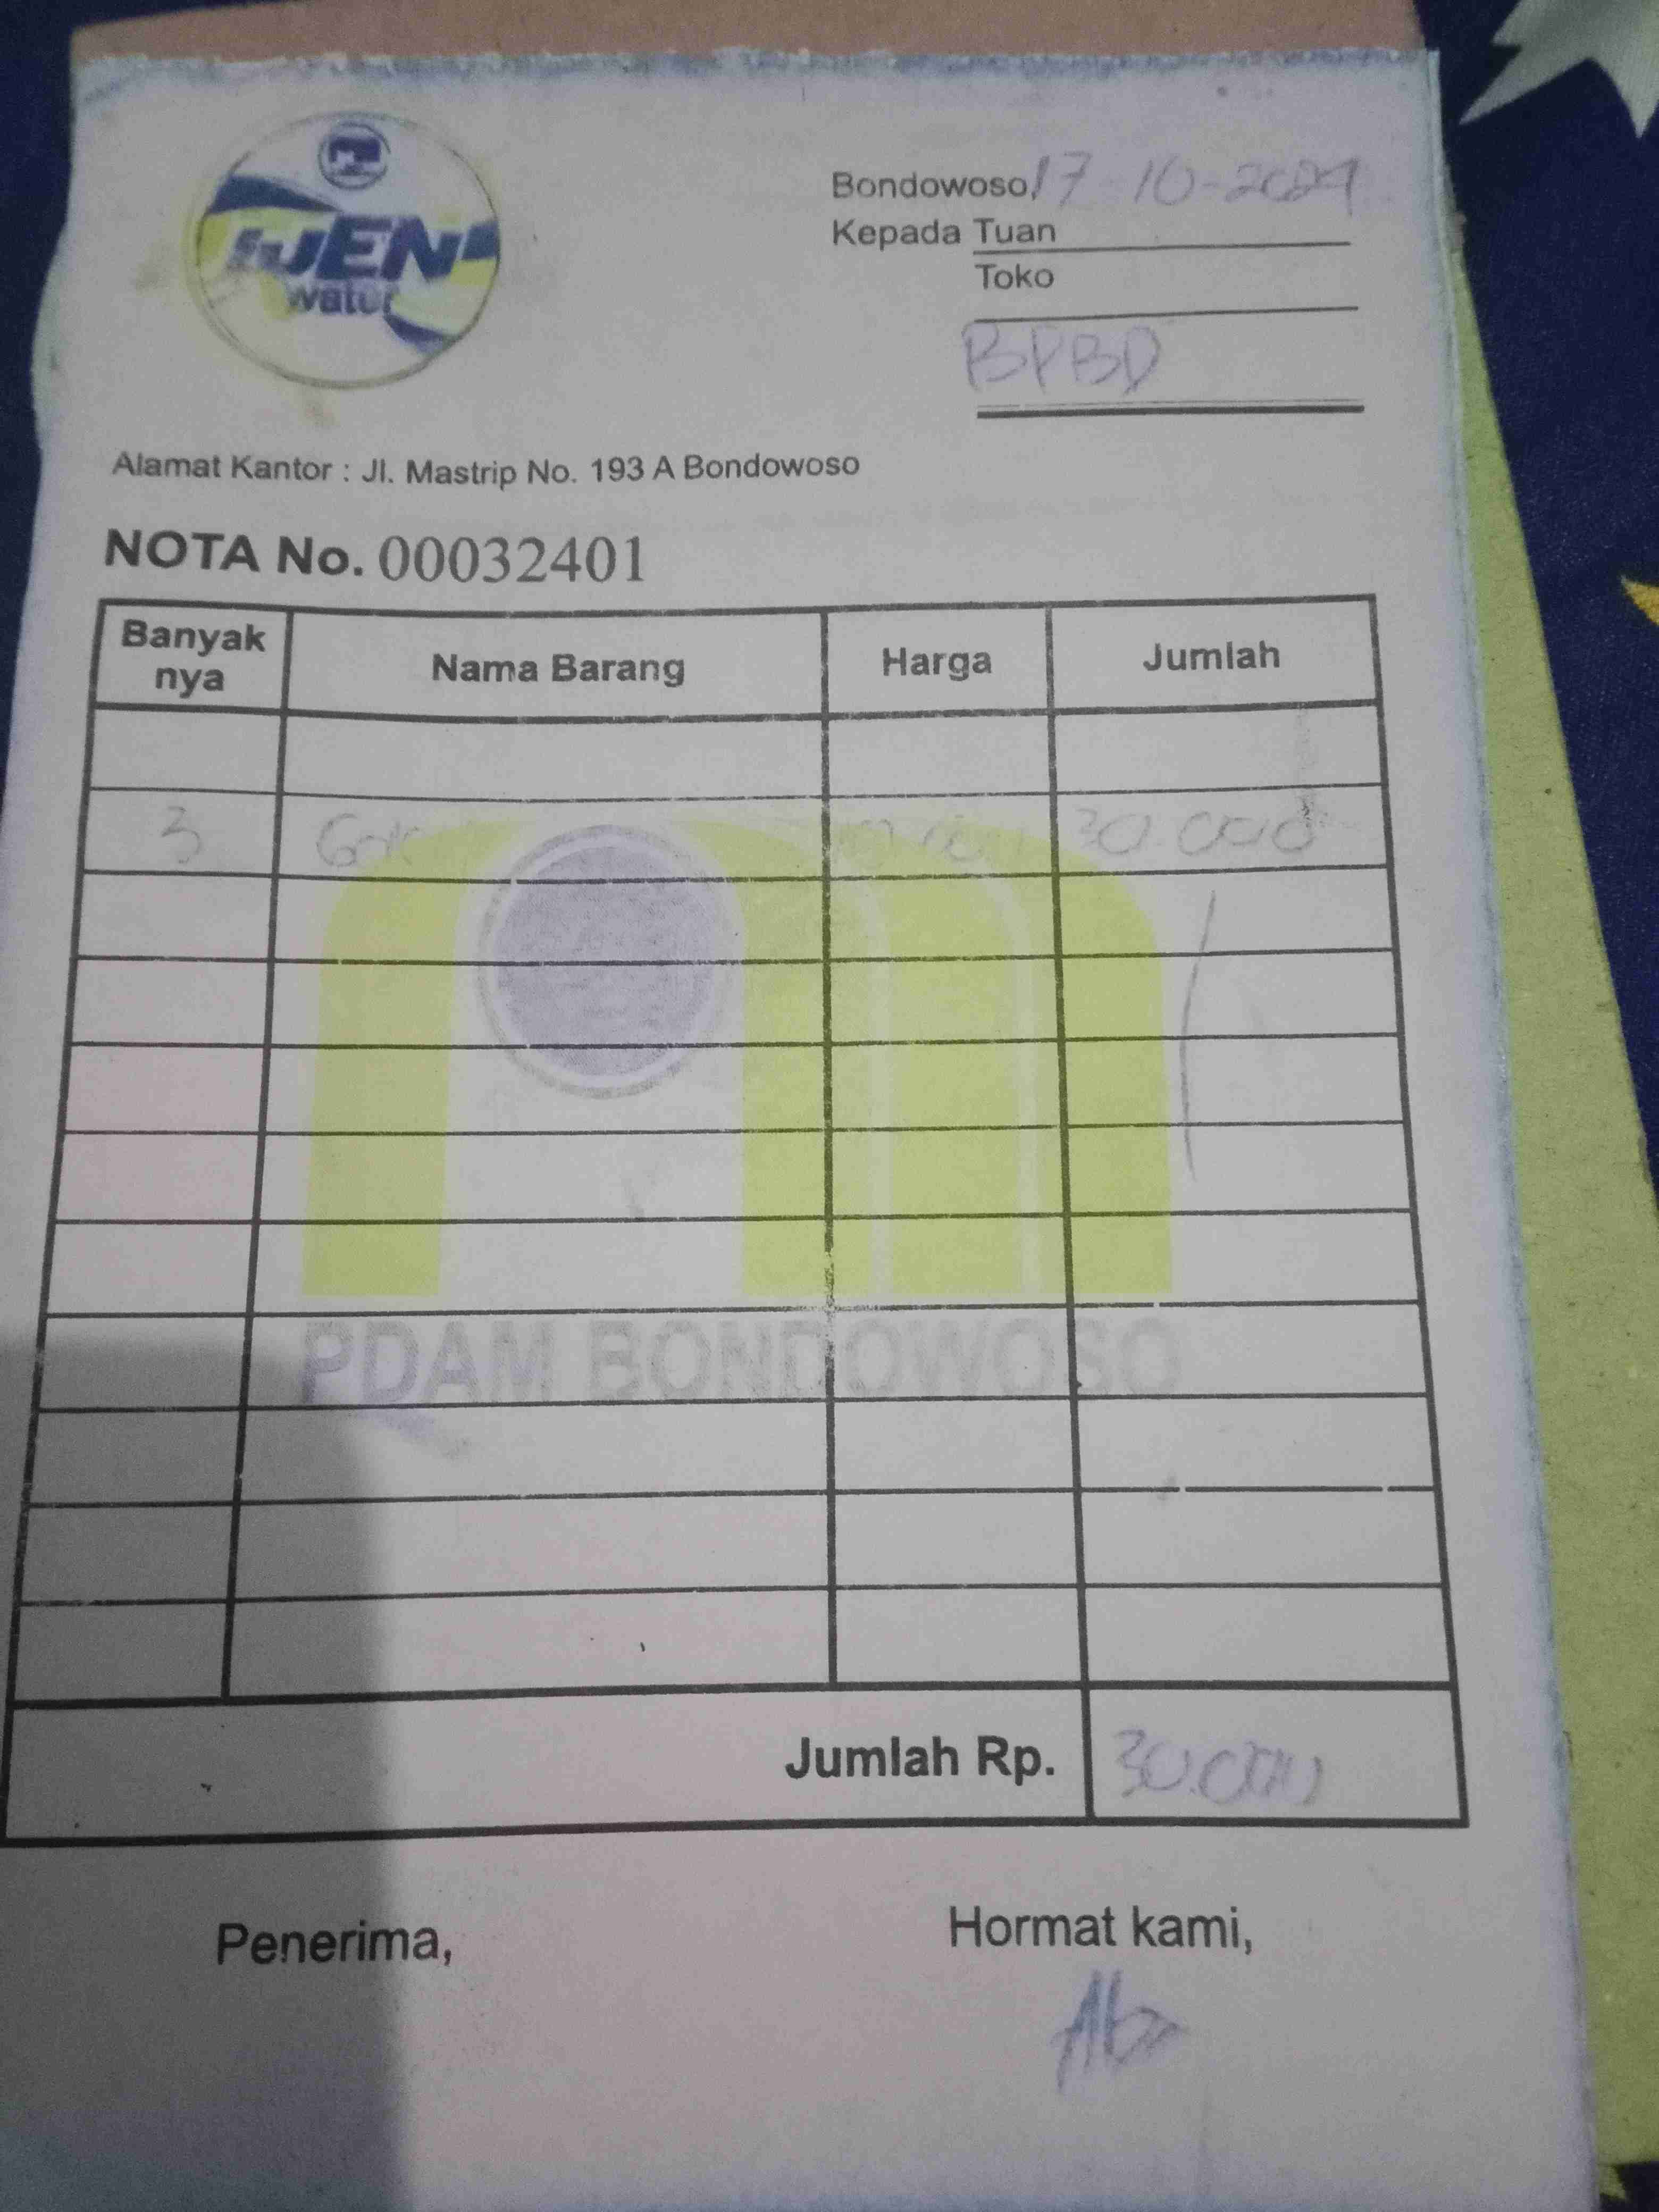 IJEN
water
Bondowoso, 17-10-2024
Kepada Tuan
Toko
BPBD
Alamat Kantor : Jl. Mastrip No. 193 A Bondowoso
NOTA No. 00032401
Banyak nya Nama Barang Harga Jumlah
3 30.000
PDAM BONDOWOSO
Jumlah Rp. 30.000
Penerima, Hormat kami,